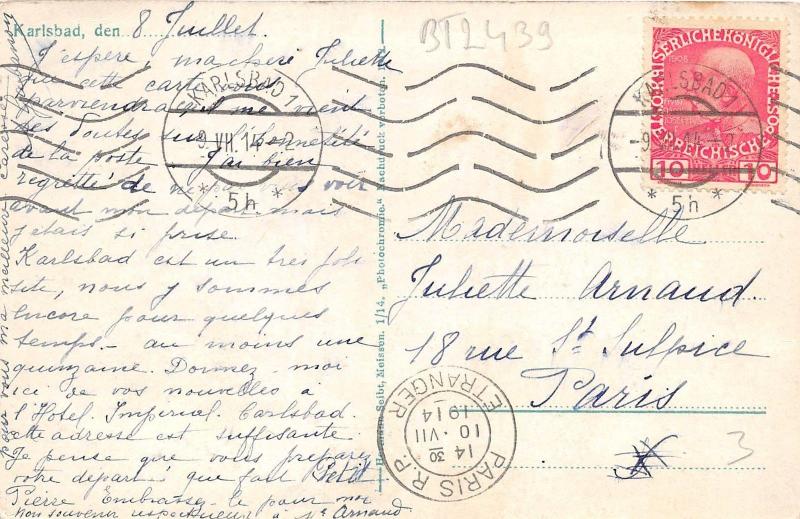 Karlsbad, den 8 Juillet.
J'espère, ma chère Juliette
que cette carte vous
parviendra, il me vient
des doutes sur l'honnêteté
de la poste. J'ai bien
regretté de ne pas vous voir
avant mon départ mais
j'étais si prise.
Karlsbad est un très joli
site, nous y sommes
encore pour quelques
temps. - au moins une
quinzaine. Donnez-moi
ici de vos nouvelles à
l'Hotel Imperial. Carlsbad.
cette adresse est suffisante.
Je pense que vous préparez
votre départ: que fait Petit
Pierre Embrassez-le pour moi
Mon souvenir respectueux à Me Arnaud
pour vous ma meilleure caresse
BT2439
KARLSBAD 1
9.VII.14
* 5h *
KARLSBAD 1
-9.VII.14
* 5h *
1908
KAISERLICHE KÖNIGLICHE
ÖSTERREICHISCHE
10 10
Hermann Seibt, Meissen. 1/14. „Photochromie." Nachdruck verboten.
Mademoiselle
Juliette Arnaud.
18 rue St Sulpice
Paris
PARIS R.P.
ETRANGER
14 30
10 · VII
1914
3